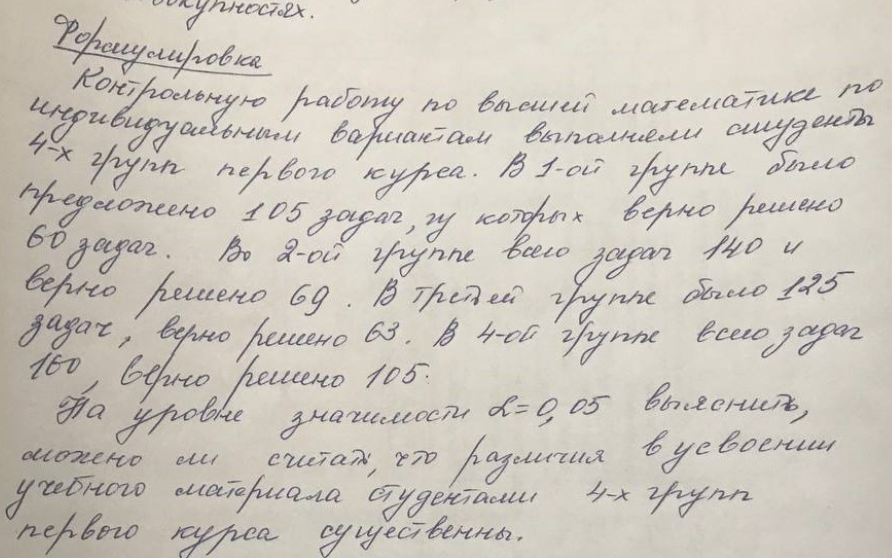 окупностях.
Формулировка
Контрольную работу по высшей математике по
индивидуальным вариантам выполняли студенты
4-х групп первого курса. В 1-ой группе было
предложено 105 задач, из которых верно решено
60 задач. Во 2-ой группе всего задач 140 и
верно решено 69. В третей группе было 125
задач, верно решено 63. В 4-ой группе всего задач
160, верно решено 105.
На уровне значимости α=0,05 выяснить,
можно ли считать, что различия в усвоении
учебного материала студентами 4-х групп
первого курса существенны.